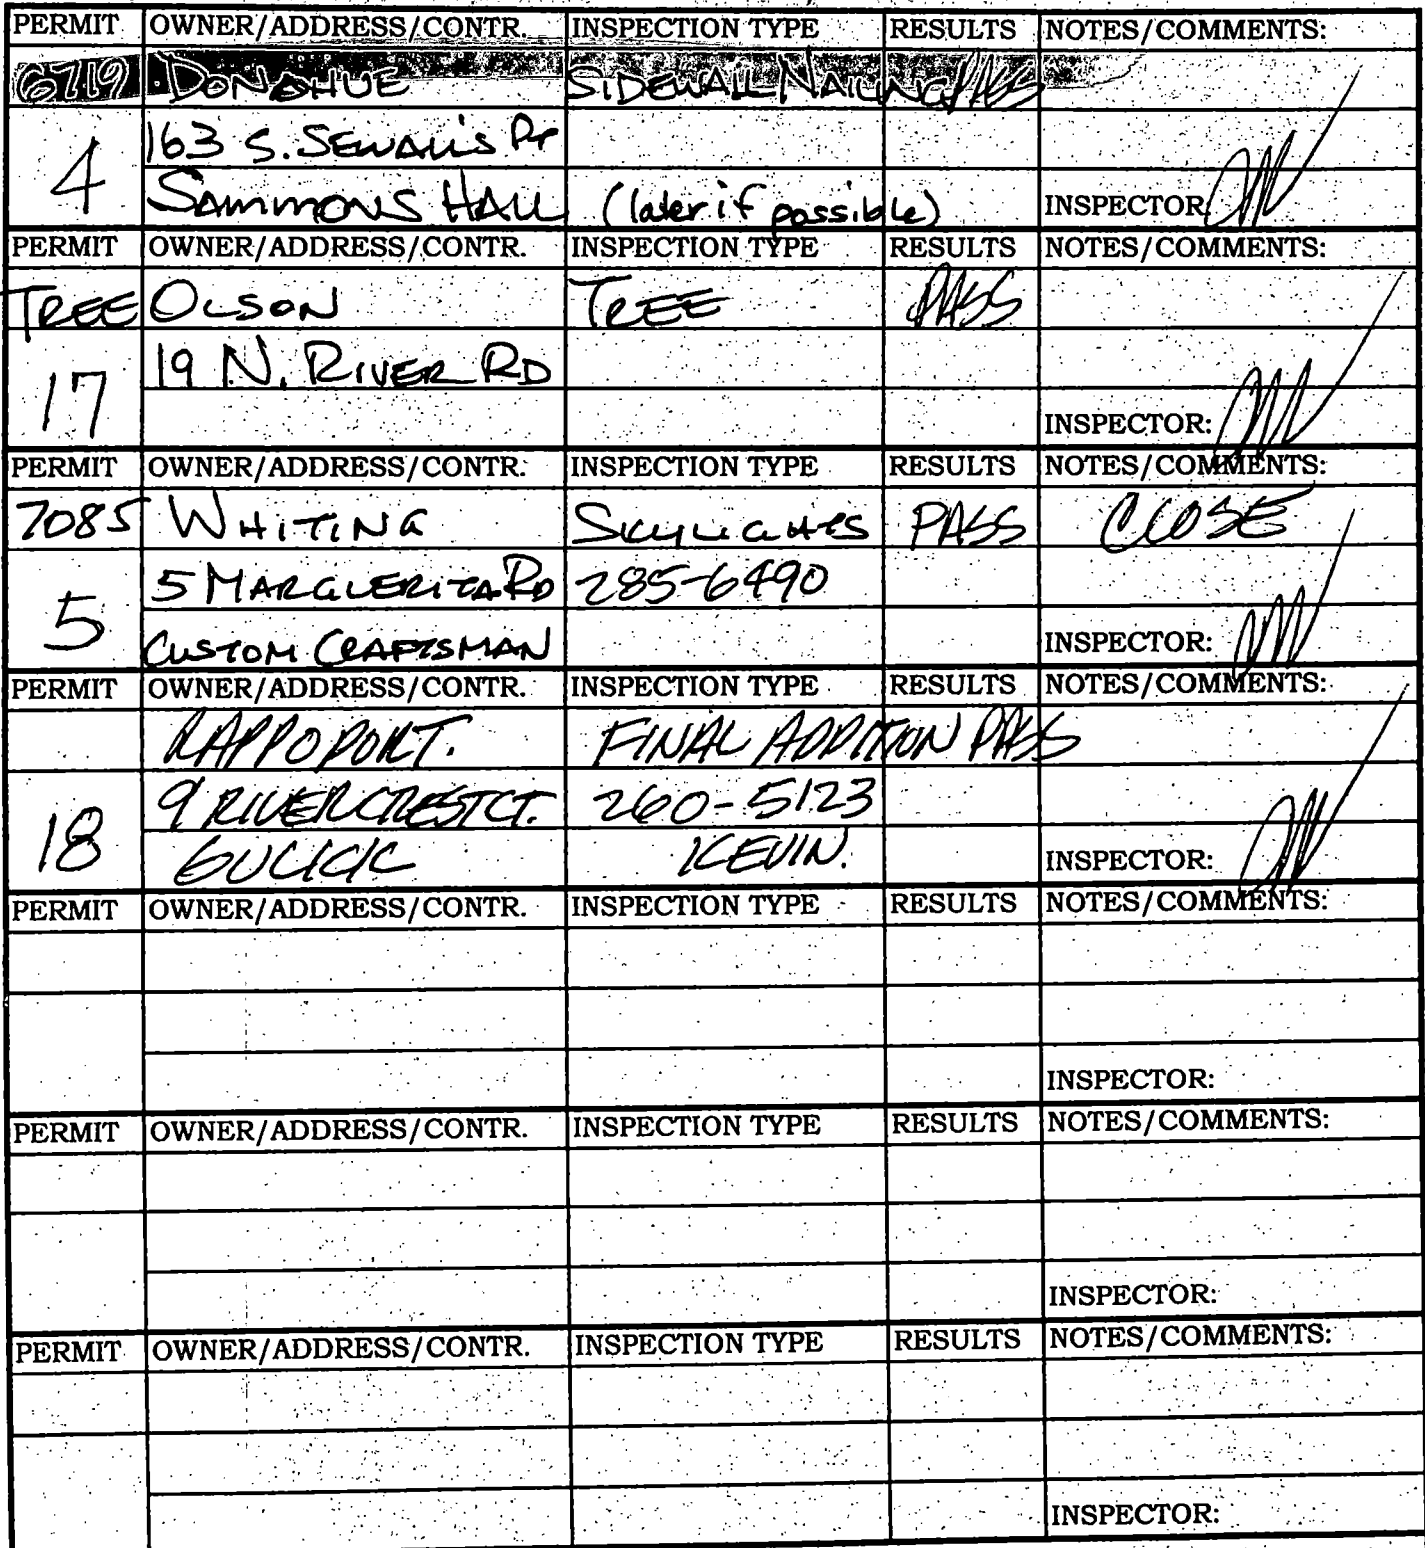 PERMIT OWNER/ADDRESS/CONTR. INSPECTION TYPE RESULTS NOTES/COMMENTS:
6719 DONOHUE SIDEWALL NAILING PASS
163 S. SEWALL'S PT
4 SAMMONS HALL (later if possible) INSPECTOR:
PERMIT OWNER/ADDRESS/CONTR. INSPECTION TYPE RESULTS NOTES/COMMENTS:
TREE OLSON TREE PASS
19 N. RIVER RD
17 INSPECTOR:
PERMIT OWNER/ADDRESS/CONTR. INSPECTION TYPE RESULTS NOTES/COMMENTS:
7085 WHITING SKYLIGHTS PASS CLOSE
5 MARGUERITA RD 285-6490
5 CUSTOM CRAFTSMAN INSPECTOR:
PERMIT OWNER/ADDRESS/CONTR. INSPECTION TYPE RESULTS NOTES/COMMENTS:
RAPPOPORT. FINAL ADDITION PASS
9 RIVERCREST CT. 260-5123
18 GULICK KEVIN. INSPECTOR:
PERMIT OWNER/ADDRESS/CONTR. INSPECTION TYPE RESULTS NOTES/COMMENTS:
INSPECTOR:
PERMIT OWNER/ADDRESS/CONTR. INSPECTION TYPE RESULTS NOTES/COMMENTS:
INSPECTOR:
PERMIT OWNER/ADDRESS/CONTR. INSPECTION TYPE RESULTS NOTES/COMMENTS:
INSPECTOR: